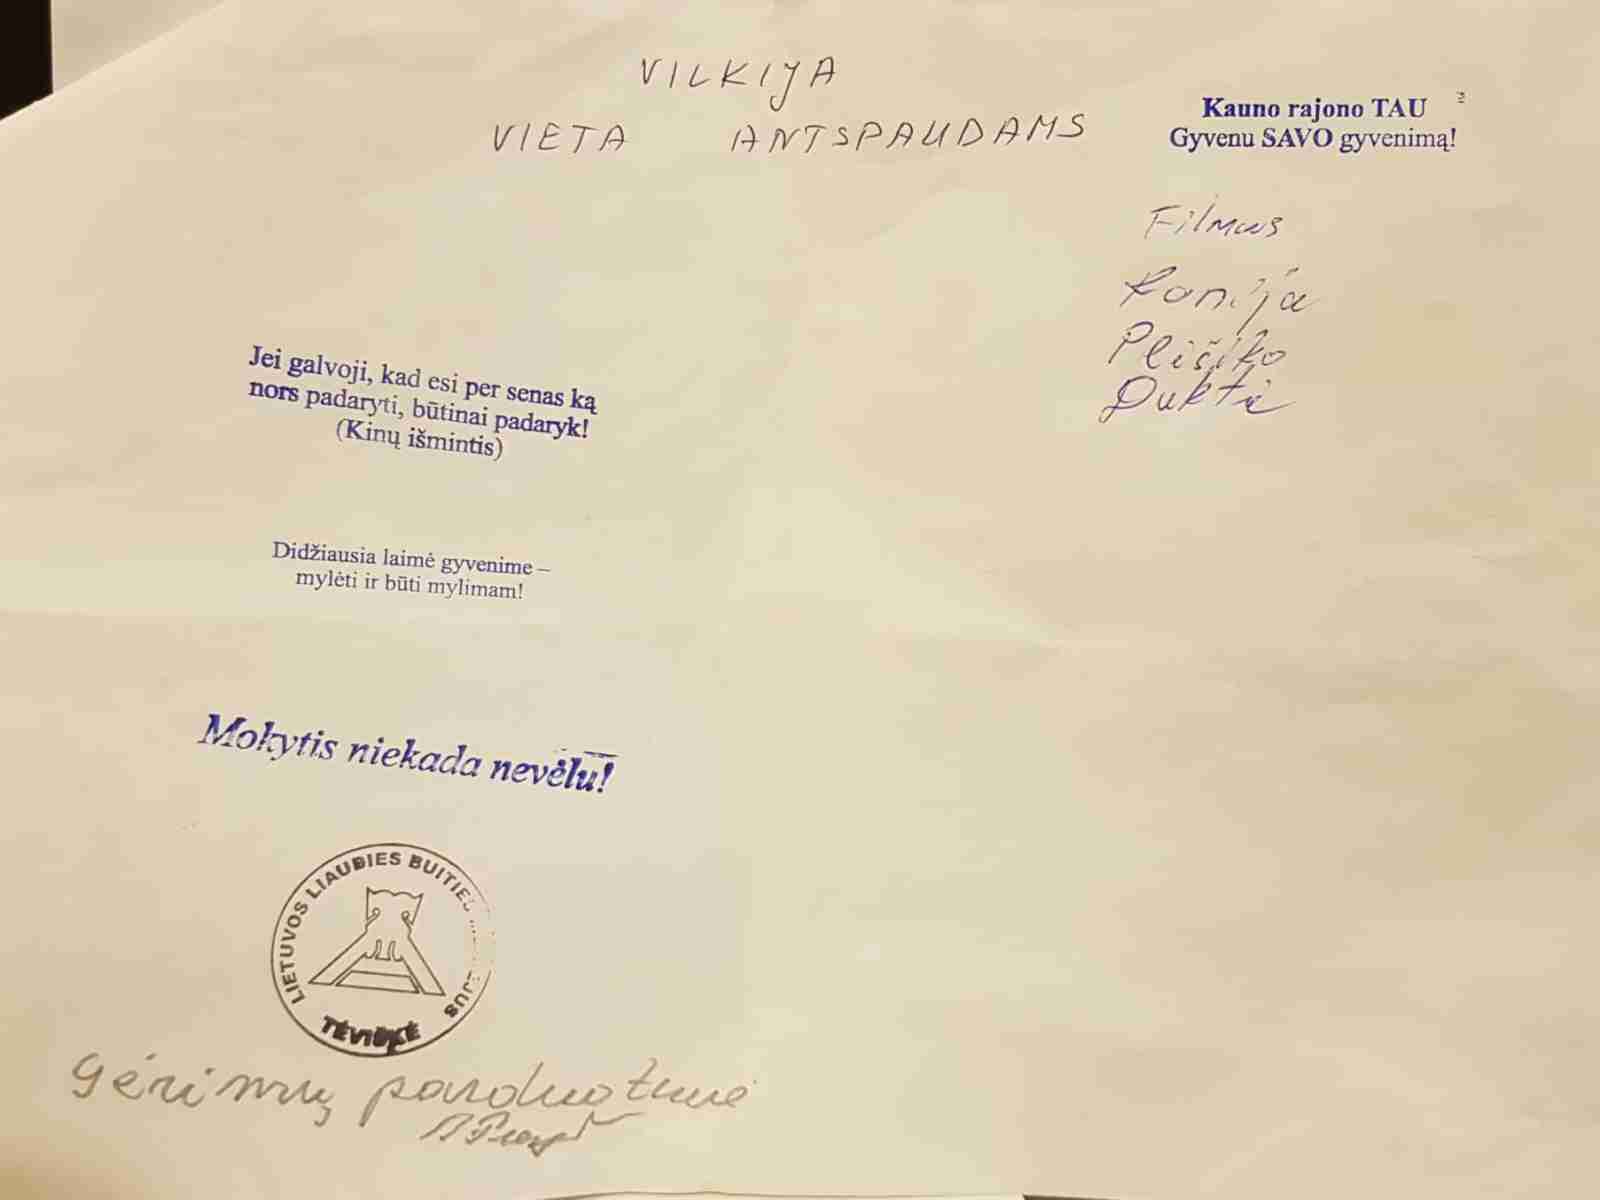 VILKIJA
VIETA ANTSPAUDAMS
Kauno rajono TAU
Gyvenu SAVO gyvenimą!
Filmas
Ronija
Plėšiko
Duktė
Jei galvoji, kad esi per senas ką
nors padaryti, būtinai padaryk!
(Kinų išmintis)
Didžiausia laimė gyvenime –
mylėti ir būti mylimam!
Mokytis niekada nevėlu!
LIETUVOS LIAUDIES BUITIES
TĖVIŠKĖ
Gėrimų parduotuvė